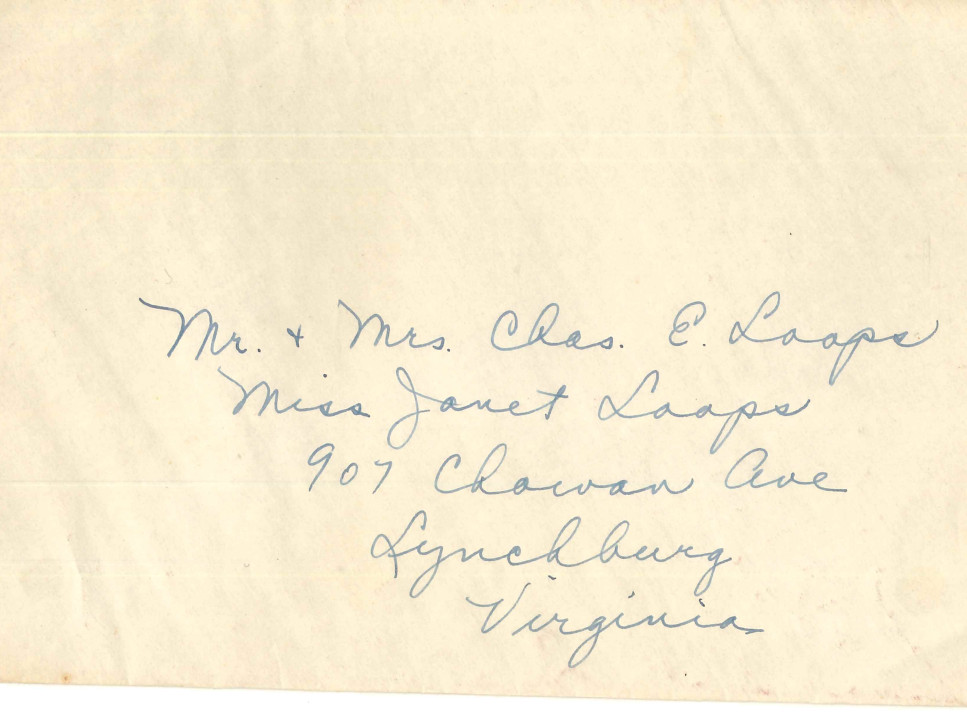 Mr. + Mrs. Chas. E. Loops
Miss Janet Loops
907 Chowan Ave
Lynchburg
Virginia